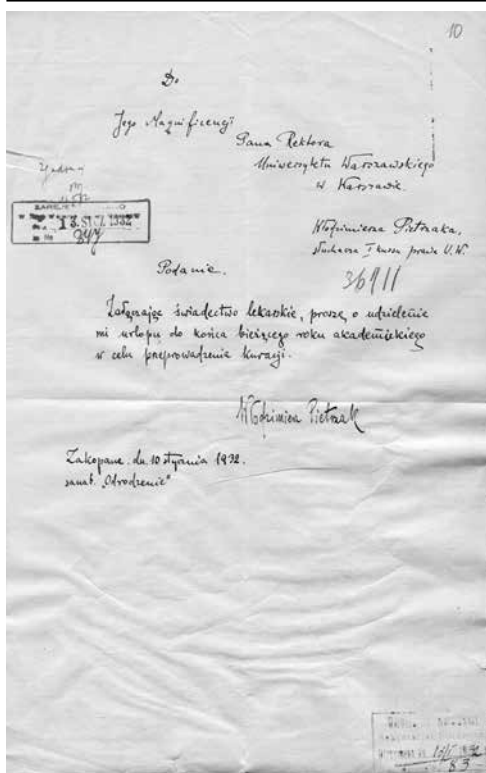 10
Do
Jego Magnificencji
Pana Rektora
Uniwersytetu Warszawskiego
w Warszawie.
13. STYCZ. 1932
847
Włodzimierza Pietrzaka,
słuchacza I kursu prawa U.W.
36911
Podanie.
Załączając świadectwo lekarskie, proszę o udzielenie
mi urlopu do końca bieżącego roku akademickiego
w celu przeprowadzenia kuracji.
Włodzimierz Pietrzak
Zakopane. dn. 10 stycznia 1932.
sanat. „Odrodzenie"
83